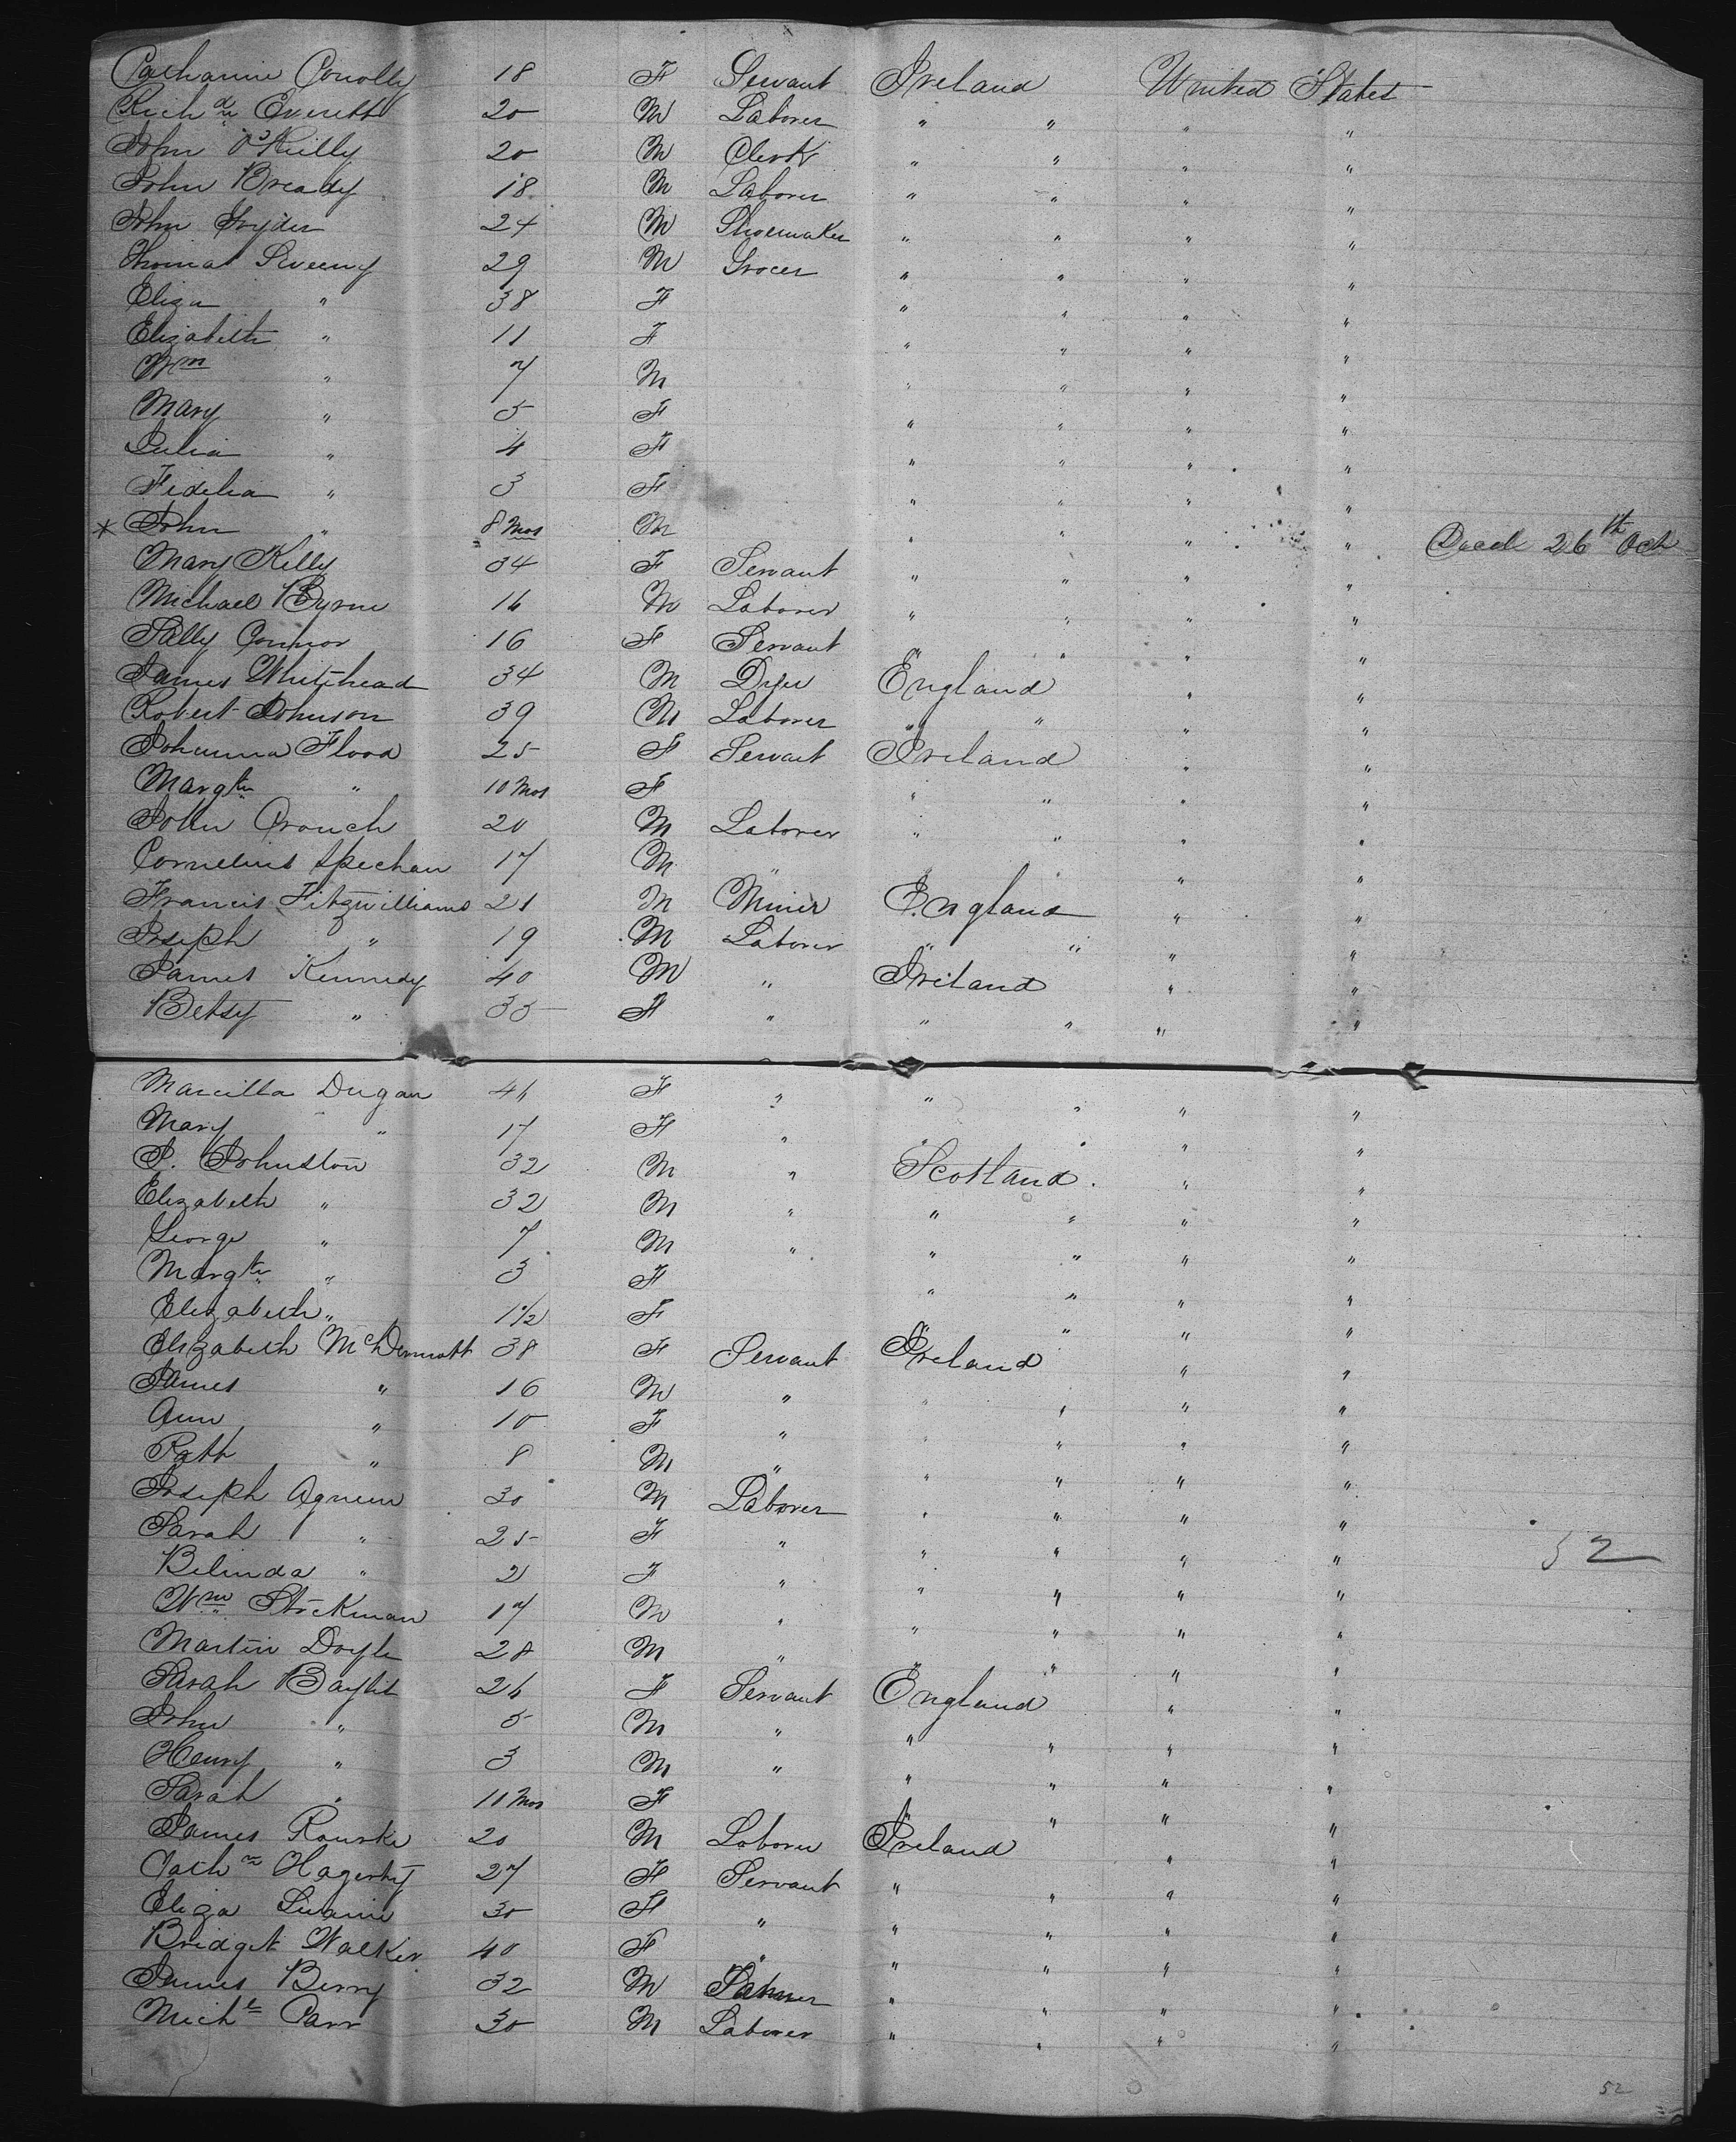 Catharine Conolly 18 F Servant Ireland United States
Richd Everett 20 M Laborer " " " "
John O'Reilly 20 M Clerk " " " "
John Bready 18 M Laborer " " " "
John 24 M Shoemaker " " " "
Thomas Sweeny 29 M Grocer " " " "
Eliza " 38 F " " " "
Elizabeth " 11 F " " " "
Wm " 7 M " " " "
Mary " 5 F " " " "
Julia " 4 F " " " "
Fidelia " 3 F " " " "
* John " 8 Mos M " " " " 26th Oct
Mary Kelly 34 F Servant " " " "
Michael Byrne 16 M Laborer " " " "
Sally Connor 16 F Servant " " " "
James Whitehead 34 M Dyer England " "
Robert Johnson 39 M Laborer " " " "
Johanna Flood 25 F Servant Ireland " "
Margt " 10 Mos F " " " "
John Crouch 20 M Laborer " " " "
Cornelius 17 M " " " " "
Francis Fitzwilliams 21 M Miner England " "
Joseph " 19 M Laborer " " " "
James Kennedy 40 M " Ireland " "
Betsy " 35 F " " " " "
Marcilla Dugan 46 F " " " " "
Mary " 17 F " " " " "
J. Johnston 32 M " Scotland " "
Elizabeth " 32 M " " " " "
George " 7 M " " " " "
Margt " 3 F " " " "
Elizabeth " 1 1/2 F " " " "
Elizabeth McDermott 38 F Servant Ireland " "
James " 16 M " " " " "
Ann " 10 F " " " " "
Patk " 8 M " " " " "
Joseph Agnew 30 M Laborer " " " "
Sarah " 25 F " " " " " 52
Belinda " 2 F " " " " "
Wm Stockman 17 M " " " " "
Martin Doyle 28 M " " " " "
Sarah Baylit 26 F Servant England " "
John " 5 M " " " " "
Henry " 3 M " " " " "
Sarah " 10 Mos F " " " "
James Rourke 20 M Laborer Ireland " "
Cathne Hagerty 27 F Servant " " " "
Eliza 30 F " " " " "
Bridget Walker 40 F " " " " "
James Berry 32 M " " " "
Michl Carr 30 M Laborer " " " "
52